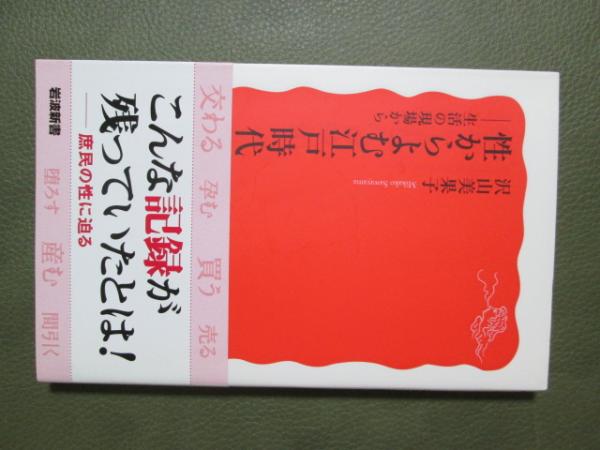 性からよむ江戸時代
──生活の現場から
沢山美果子
Mikako Sawayama
交わる 孕む 買う 売る
こんな記録が
残っていたとは!
──庶民の性に迫る
堕ろす 産む 間引く
岩波新書